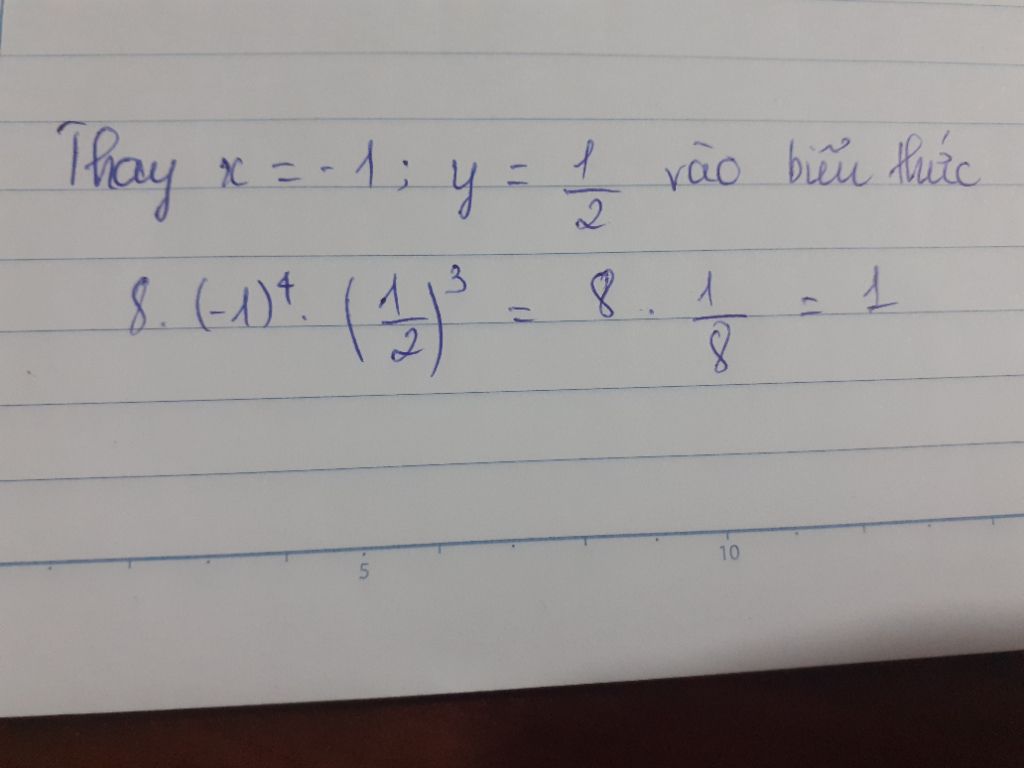 Thay x = -1; y = 1/2 vào biểu thức
8. (-1)⁴. (1/2)³ = 8 . 1/8 = 1
5 10